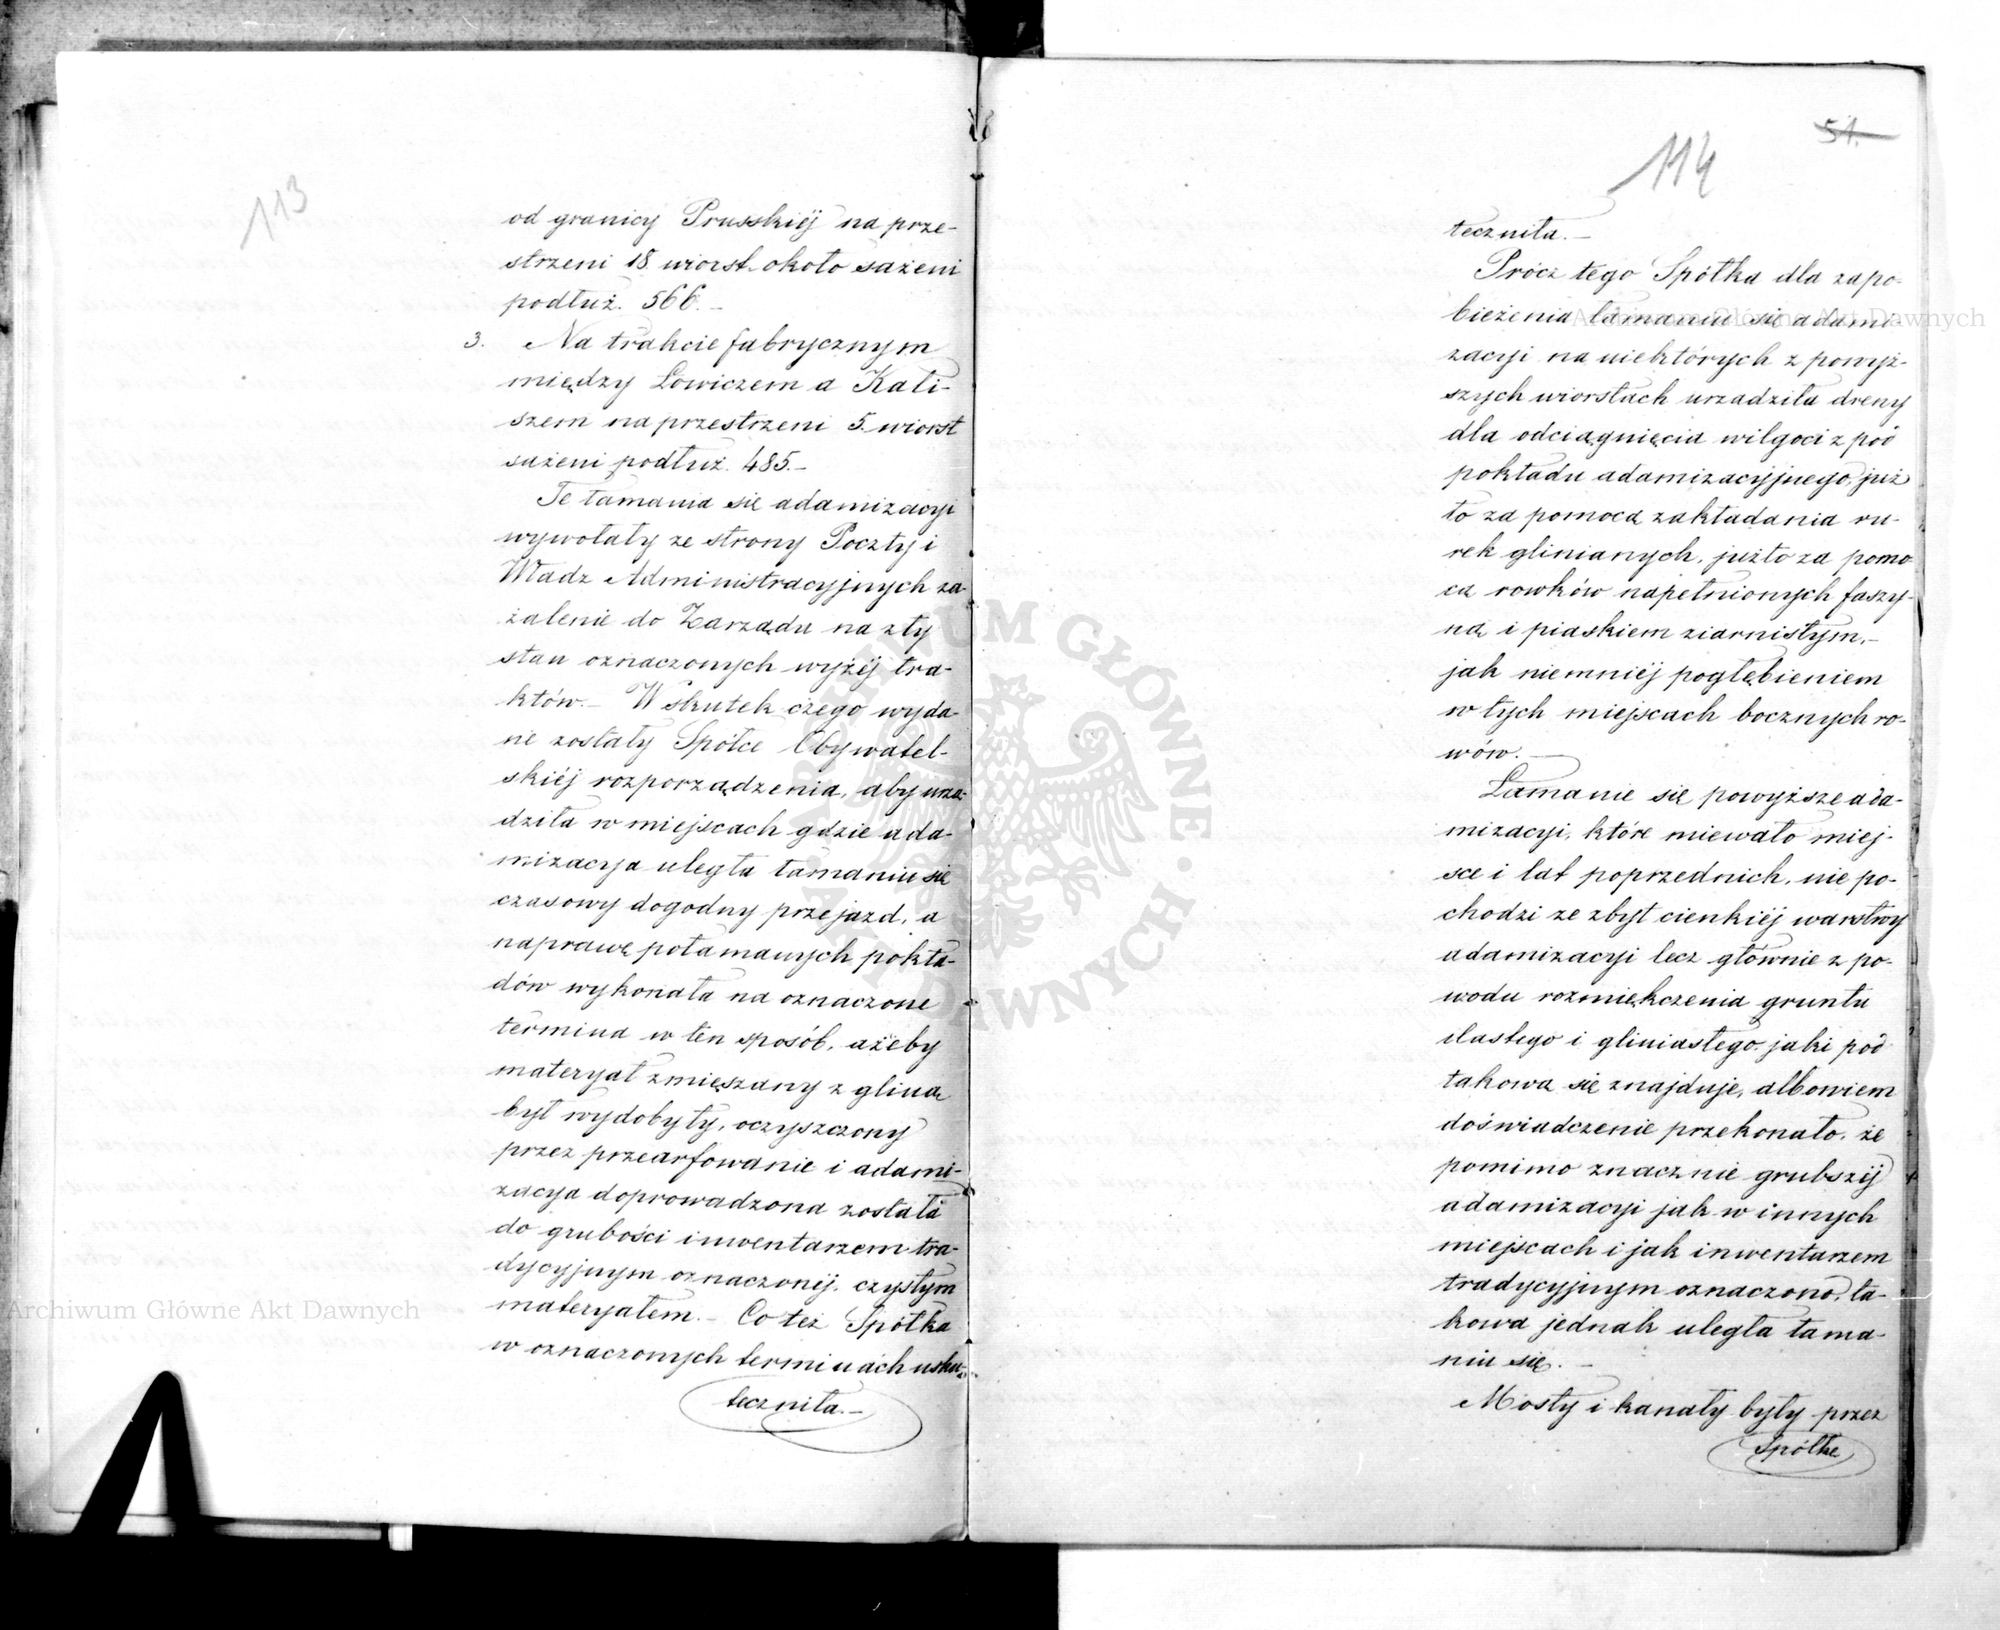 113
od granicy Prusskiéj na prze-
strzeni 18 wiorst około sażeni
podłuż. 566. –
3. Na trakcie fabrycznym
między Łowiczem a Kali-
szem na przestrzeni 5. wiorst
sażeni podłuż. 485. –
Te łamania się adamizacyi
wywołały ze strony Poczty i
Władz Administracyjnych za-
żalenie do Zarządu na zły
stan oznaczonych wyżéj tra-
któw. – W skutek czego wyda-
ne zostały Spółce Obywatel-
skiéj rozporządzenia, aby urzą-
dziła w miejscach gdzie ada-
mizacyja uległa łamaniu się
czasowy dogodny przejazd, a
naprawę połamanych pokła-
dów wykonała na oznaczone
termina w ten sposób, ażeby
materyał zmięszany z gliną
był wydobyty, oczyszczony
przez przearfowanie i adami-
zacyja doprowadzona została
do grubości inwentarzem tra-
dycyjnym oznaczonéj, czystym
materyałem. – Co téż Spółka
w oznaczonych terminach usku-
teczniła. –
51.
114
teczniła. –
Prócz tego Spółka dla zapo-
bieżenia łamaniu się adami-
zacyi na niektórych z powyż-
szych wiorstach urządziła dreny
dla odciągnięcia wilgoci z pod
pokładu adamizacyjnego, już
to za pomocą zakładania ru-
rek glinianych, jużto za pomo-
cą rowków napełnionych faszy-
ną i piaskiem ziarnistym, –
jak niemniéj pogłębieniem
w tych miejscach bocznych ro-
wów. –
Łamanie się powyższe ada-
mizacyi, które miewało miej-
sce i lat poprzednich, nie po-
chodzi ze zbyt cienkiéj warstwy
adamizacyi lecz głównie z po-
wodu rozmiękczenia gruntu
ilastego i gliniastego jaki pod
takową się znajduje, albowiem
doświadczenie przekonało, że
pomimo znacznie grubszéj
adamizacyi jak w innych
miejscach i jak inwentarzem
tradycyjnym oznaczono, ta-
kowa jednak uległa łama-
niu się. –
Mosty i kanały były przez
Spółkę
ARCHIWUM GŁÓWNE AKT DAWNYCH
Archiwum Główne Akt Dawnych
Archiwum Główne Akt Dawnych